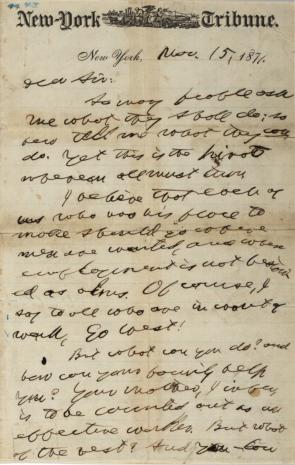 New-York Tribune.
New York, Nov. 15, 1871.
Dear Sir:
So many people ask
me what they shall do; so
few tell me what they can
do. Yet this is the pivot
wherein all must turn
I believe that each of
us who has his place to
make should go where
men are wanted, and where
employment is not bestow-
ed as alms. Of course, I
say to all who are in want of
work, Go West!
But what can you do? and
how can your family help
you? Your mother, I infer,
is to be counted out as an
effective worker. But what
of the rest? And you - Can